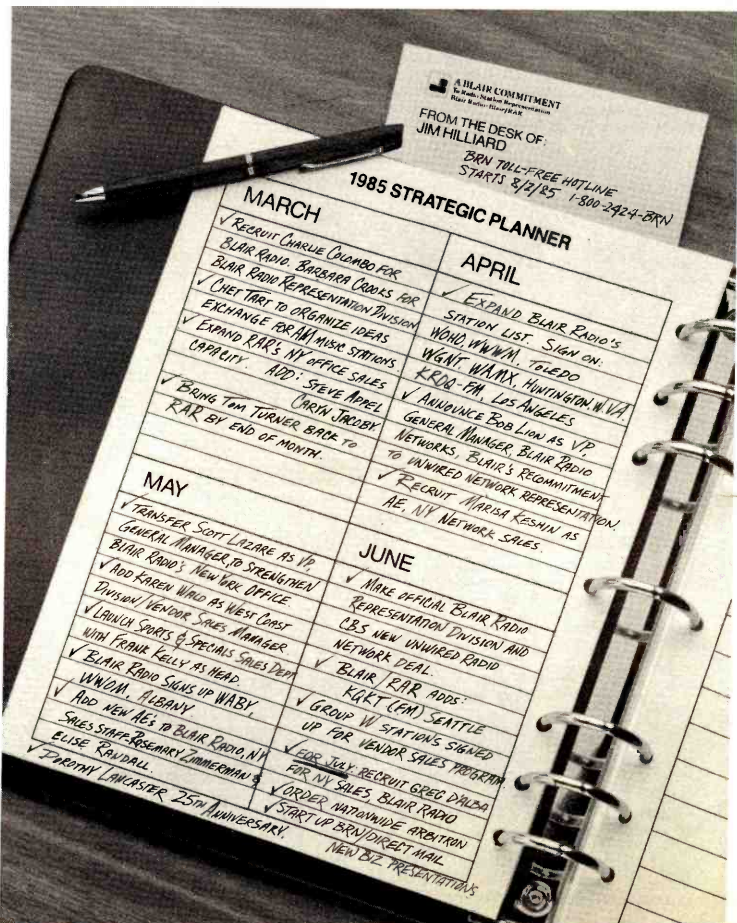 A BLAIR COMMITMENT
To Radio Station Representation
Blair Radio • Blair/RAR
FROM THE DESK OF:
JIM HILLIARD
BRN TOLL-FREE HOTLINE
STARTS 8/2/85 1-800-2424-BRN
1985 STRATEGIC PLANNER
MARCH
✓ RECRUIT CHARLIE COLOMBO FOR
BLAIR RADIO. BARBARA CROOKS FOR
BLAIR RADIO REPRESENTATION DIVISION
✓ CHET TART TO ORGANIZE IDEAS
EXCHANGE FOR AM MUSIC STATIONS.
✓ EXPAND RAR'S NY OFFICE SALES
CAPACITY. ADD: STEVE APPEL
CARYN JACOBY
✓ BRING TOM TURNER BACK TO
RAR BY END OF MONTH.
APRIL
✓ EXPAND BLAIR RADIO'S
STATION LIST. SIGN ON:
WOHO, WWWM, TOLEDO
WGNT, WAMX, HUNTINGTON W.VA.
KROQ-FM, LOS ANGELES
✓ ANNOUNCE BOB LION AS VP,
GENERAL MANAGER, BLAIR RADIO
NETWORKS, BLAIR'S RECOMMITMENT
TO UNWIRED NETWORK REPRESENTATION.
✓ RECRUIT MARISA KESHIN AS
AE, NY NETWORK SALES.
MAY
✓ TRANSFER SCOTT LAZARE AS VP
GENERAL MANAGER, TO STRENGTHEN
BLAIR RADIO'S NEW YORK OFFICE
✓ ADD KAREN WALD AS WEST COAST
DIVISION/VENDOR SALES MANAGER
✓ LAUNCH SPORTS & SPECIALS SALES DEPT.
WITH FRANK KELLY AS HEAD
✓ BLAIR RADIO SIGNS UP WABY,
WWOM, ALBANY
✓ ADD NEW AE'S TO BLAIR RADIO, NY
SALES STAFF: ROSEMARY ZIMMERMAN &
ELISE RANDALL.
✓ DOROTHY LANCASTER 25TH ANNIVERSARY.
JUNE
✓ MAKE OFFICIAL BLAIR RADIO
REPRESENTATION DIVISION AND
CBS NEW UNWIRED RADIO
NETWORK DEAL.
✓ BLAIR/RAR ADDS:
KQKT (FM) SEATTLE
✓ GROUP W STATIONS SIGNED
UP FOR VENDOR SALES PROGRAM
✓ FOR JULY: RECRUIT GREG D'ALBA
FOR NY SALES, BLAIR RADIO
✓ ORDER NATIONWIDE ARBITRON
✓ START UP BRN/DIRECT MAIL
NEW BIZ PRESENTATIONS